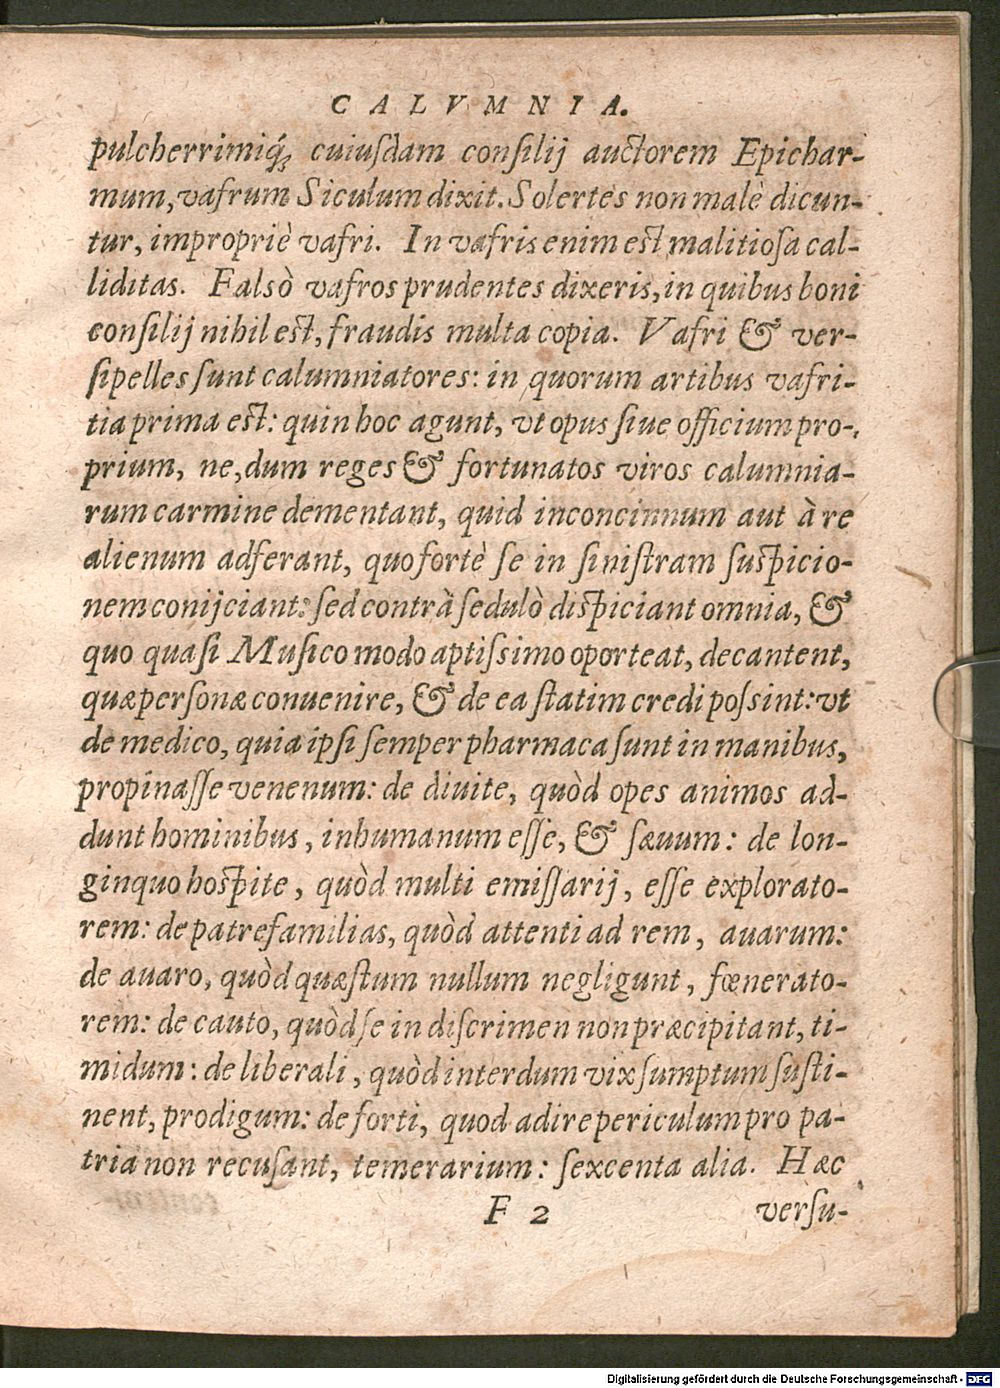 CALVMNIA.
pulcherrimiq́; cuiusdam consilij auctorem Epichar-
mum, vafrum Siculum dixit. Solertes non malè dicun-
tur, impropriè vafri. In vafris enim est malitiosa cal-
liditas. Falsò vafros prudentes dixeris, in quibus boni
consilij nihil est, fraudis multa copia. Vafri & ver-
sipelles sunt calumniatores: in quorum artibus vafri-
tia prima est: quin hoc agunt, vt opus siue officium pro-
prium, ne, dum reges & fortunatos viros calumnia-
rum carmine dementant, quid inconcinnum aut à re
alienum adferant, quo fortè se in sinistram suspicio-
nem conijciant: sed contrà sedulò dispiciant omnia, &
quo quasi Musico modo aptissimo oporteat, decantent,
quæ personæ conuenire, & de ea statim credi possint: vt
de medico, quia ipsi semper pharmaca sunt in manibus,
propinasse venenum: de diuite, quòd opes animos ad-
dunt hominibus, inhumanum esse, & sæuum: de lon-
ginquo hospite, quòd multi emissarij, esse explorato-
rem: de patrefamilias, quòd attenti ad rem, auarum:
de auaro, quòd quæstum nullum negligunt, fœnerato-
rem: de cauto, quòd se in discrimen non præcipitant, ti-
midum: de liberali, quòd interdum vix sumptum susti-
nent, prodigum: de forti, quod adire periculum pro pa-
tria non recusant, temerarium: sexcenta alia. Hæc
F 2 versu-
Digitalisierung gefördert durch die Deutsche Forschungsgemeinschaft - DFG